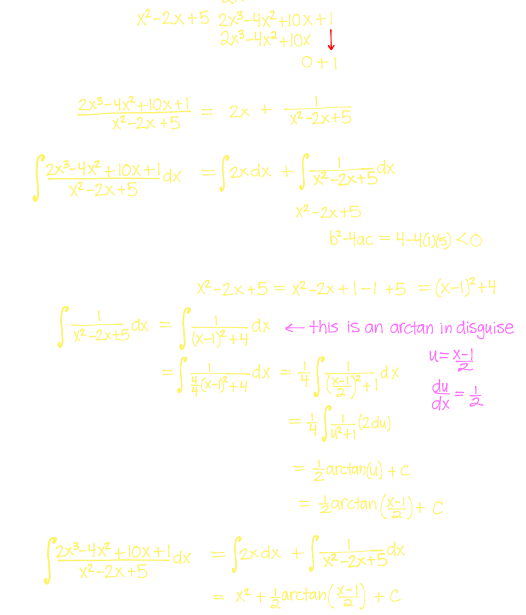 x²-2x+5 2x³-4x²+10x+1
2x³-4x²+10x
0+1
(2x³-4x²+10x+1)/(x²-2x+5) = 2x + 1/(x²-2x+5)
∫(2x³-4x²+10x+1)/(x²-2x+5) dx = ∫2xdx + ∫1/(x²-2x+5) dx
x²-2x+5
b²-4ac = 4-4(1)(5) < 0
x²-2x+5 = x²-2x+1-1+5 = (x-1)²+4
∫1/(x²-2x+5) dx = ∫1/((x-1)²+4) dx ← this is an arctan in disguise
u = (x-1)/2
= ∫1/(4/4(x-1)²+4) dx = 1/4 ∫1/(((x-1)/2)²+1) dx
du/dx = 1/2
= 1/4 ∫1/(u²+1) (2du)
= 1/2 arctan(u) + C
= 1/2 arctan((x-1)/2) + C
∫(2x³-4x²+10x+1)/(x²-2x+5) dx = ∫2xdx + ∫1/(x²-2x+5) dx
= x² + 1/2 arctan((x-1)/2) + C